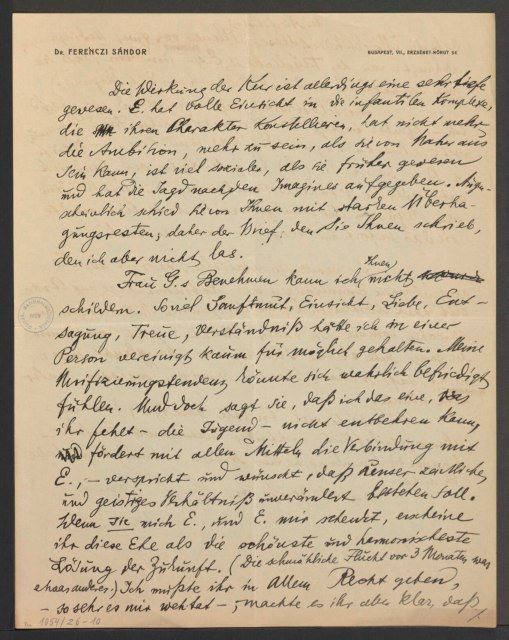 Dr. FERENCZI SÁNDOR
BUDAPEST, VII., ERZSÉBET-KÖRUT 54
Die Wirkung der Kur ist allerdings eine sehr tiefe
gewesen. E. hat volle Einsicht in die infantilen Komplexe,
die ihren Charakter konstellieren, hat nicht mehr
die Ambition, mehr zu sein, als sie von Natur aus
sein kann, ist viel sozialer, als sie früher gewesen
und hat die Jagd nach den Imagines aufgegeben. Augen-
scheinlich schied sie von Ihnen mit starken Überha-
gungsresten; daher der Brief, den sie Ihnen schrieb,
den ich aber nicht las.
Frau G.s Benehmen kann ich Ihnen nicht
schildern. Soviel Sanftmut, Einsicht, Liebe, Ent-
sagung, Treue, Verständniß hätte ich in einer
Person vereinigt kaum für möglich gehalten. Meine
Unifizierungstendenz könnte sich wahrlich befriedigt
fühlen. Und doch sagt sie, daß ich das eine, was
ihr fehlt – die Jugend – nicht entbehren kann,
und fördert mit allen Mitteln die Verbindung mit
E., – verspricht und wünscht, daß unser zärtliches
und geistiges Verhältniß unverändert bestehen soll.
Wenn sie mich E., und E. mir schenkt, erscheine
ihr diese Ehe als die schönste und harmonischeste
Lösung der Zukunft. (Die schmähliche Flucht vor 3 Monaten war
etwas anderes.) Ich mußte ihr in Allem Recht geben,
– so sehr es mir wehtat – ; machte es ihr aber klar, daß
1054/26-10